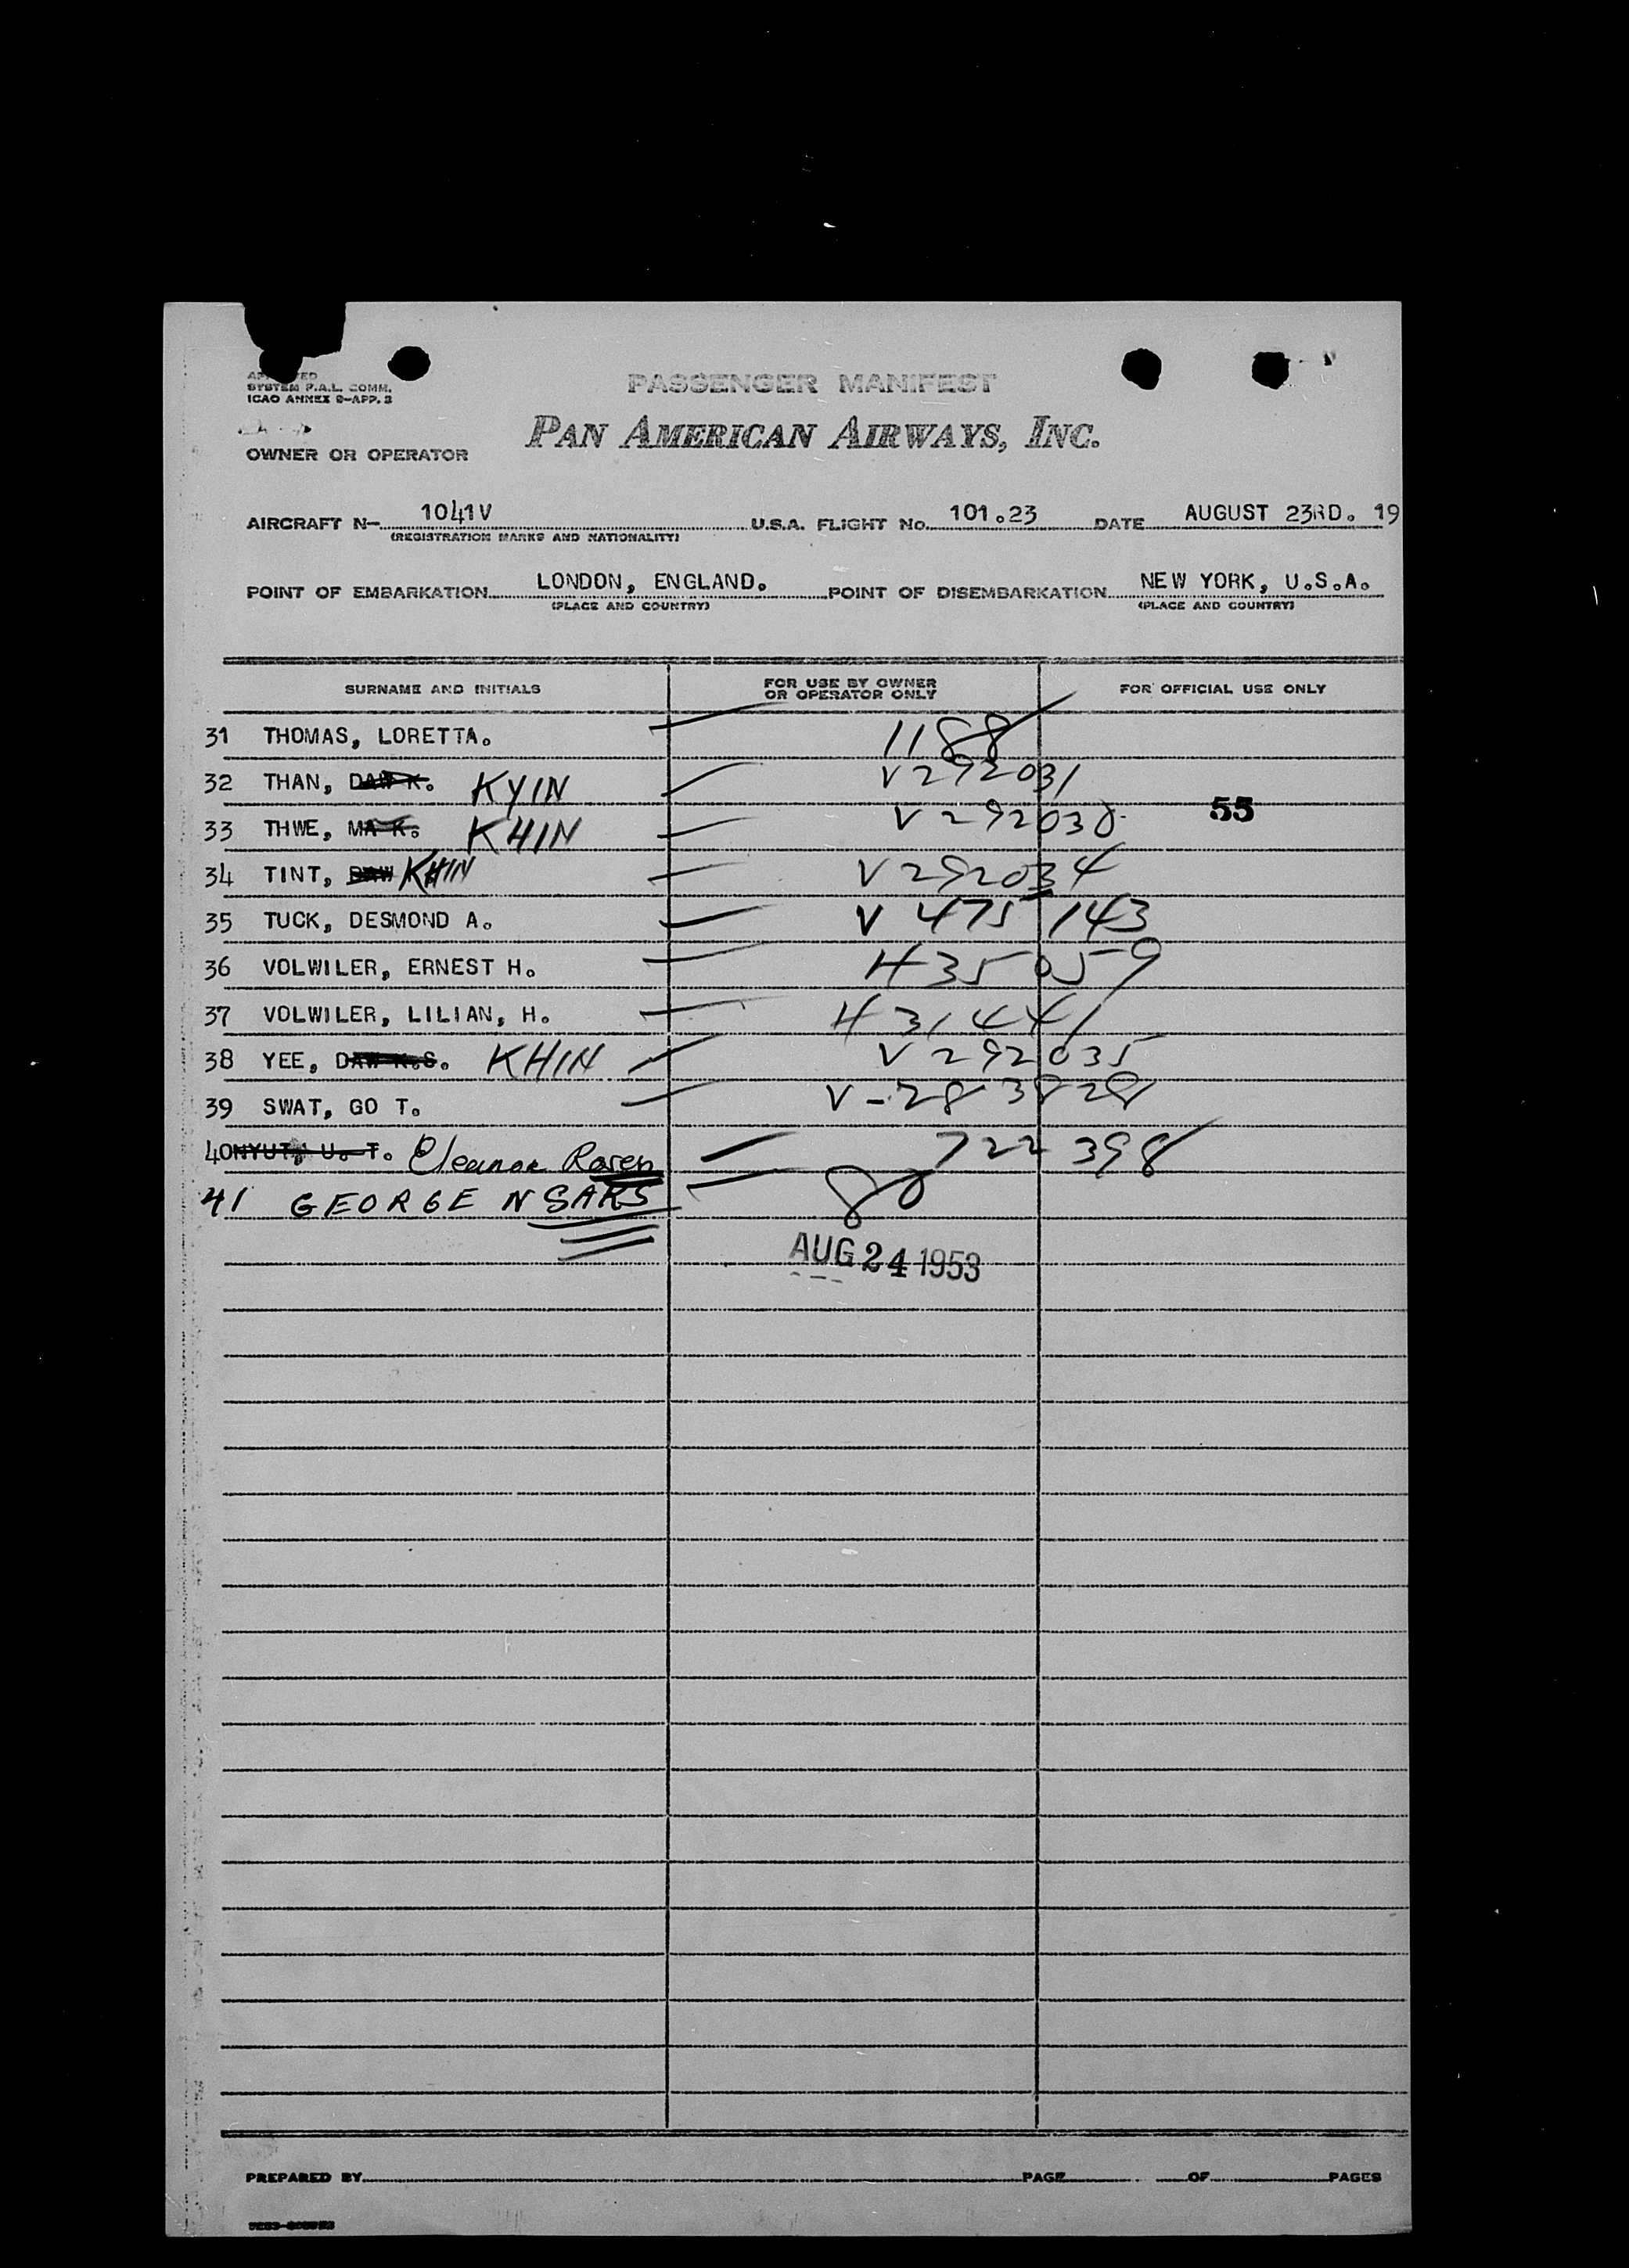 SYSTEM P.A.L. COMM.
ICAO ANNEX 9-APP. 3
PASSENGER MANIFEST
PAN AMERICAN AIRWAYS, INC.
OWNER OR OPERATOR
AIRCRAFT N- 1041V U.S.A. FLIGHT No. 101.23 DATE AUGUST 23RD. 19
(REGISTRATION MARKS AND NATIONALITY)
POINT OF EMBARKATION LONDON, ENGLAND. POINT OF DISEMBARKATION NEW YORK, U.S.A.
(PLACE AND COUNTRY) (PLACE AND COUNTRY)
SURNAME AND INITIALS FOR USE BY OWNER OR OPERATOR ONLY FOR OFFICIAL USE ONLY
31 THOMAS, LORETTA. 1188
32 THAN, DAW K. KYIN V292031
33 THWE, MA K. KHIN V292030 55
34 TINT, DAW KHIN V292034
35 TUCK, DESMOND A. V 475 143
36 VOLWILER, ERNEST H. H35059
37 VOLWILER, LILIAN, H. H 31441
38 YEE, DAW K.S. KHIN V292035
39 SWAT, GO T. V-283828
40 NYUT, U. T. Eleanor Rosen 722 398
41 GEORGE N SARS 80
AUG 24 1953
PREPARED BY PAGE OF PAGES